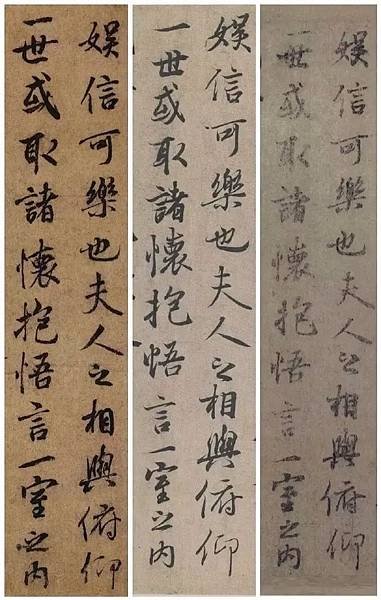 娱信可樂也夫人之相與俯仰
一世或取諸懷抱悟言一室之内
娱信可樂也夫人之相與俯仰
一世或取諸懷抱悟言一室之内
娱信可樂也夫人之相與俯仰
一世或取諸懷抱悟言一室之内